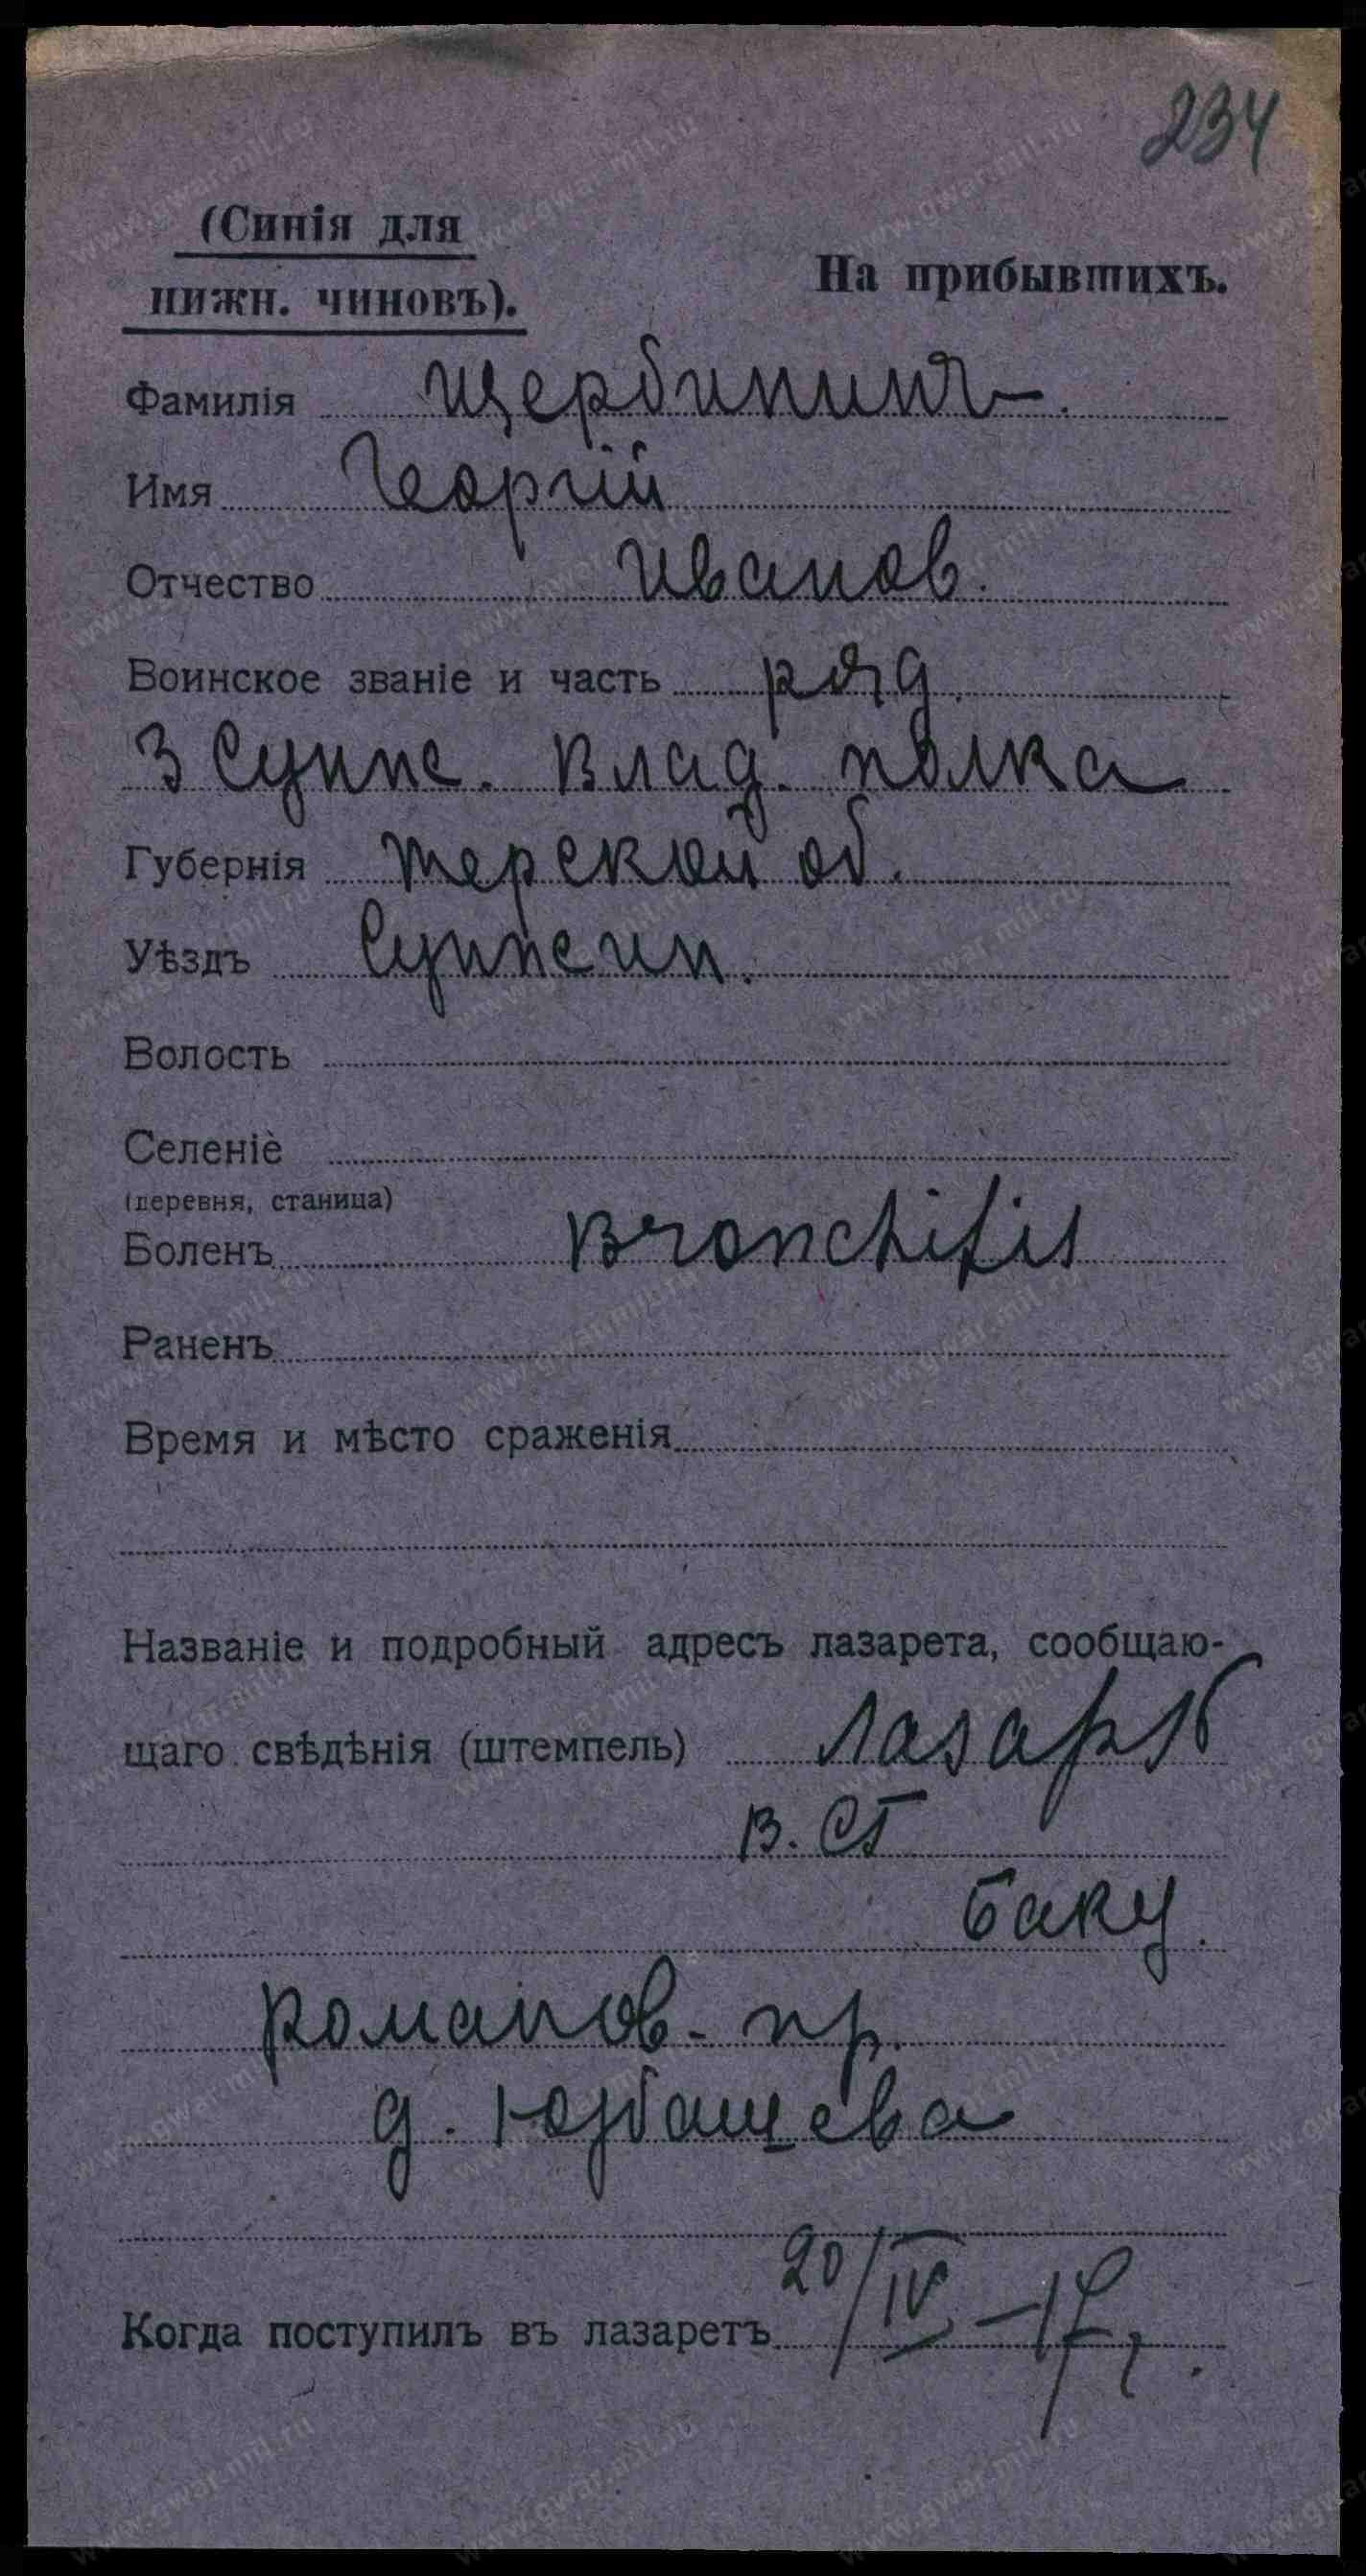 234
(Синія для
нижн. чиновъ).
На прибывшихъ.
Фамилія Щербининъ.
Имя Георгій
Отчество Иванов.
Воинское званіе и часть ряд.
3 Сунж. Влад. полка
Губернія Терской об.
Уѣздъ Сунжен.
Волость
Селеніе
(деревня, станица)
Боленъ Bronchitis
Раненъ
Время и мѣсто сраженія
Названіе и подробный адресъ лазарета, сообщаю-
щаго свѣдѣнія (штемпель) Лазар
В. СГ
Баку.
Романов. пр.
д. Юзбашева
Когда поступилъ въ лазаретъ 20/IV-17 г.